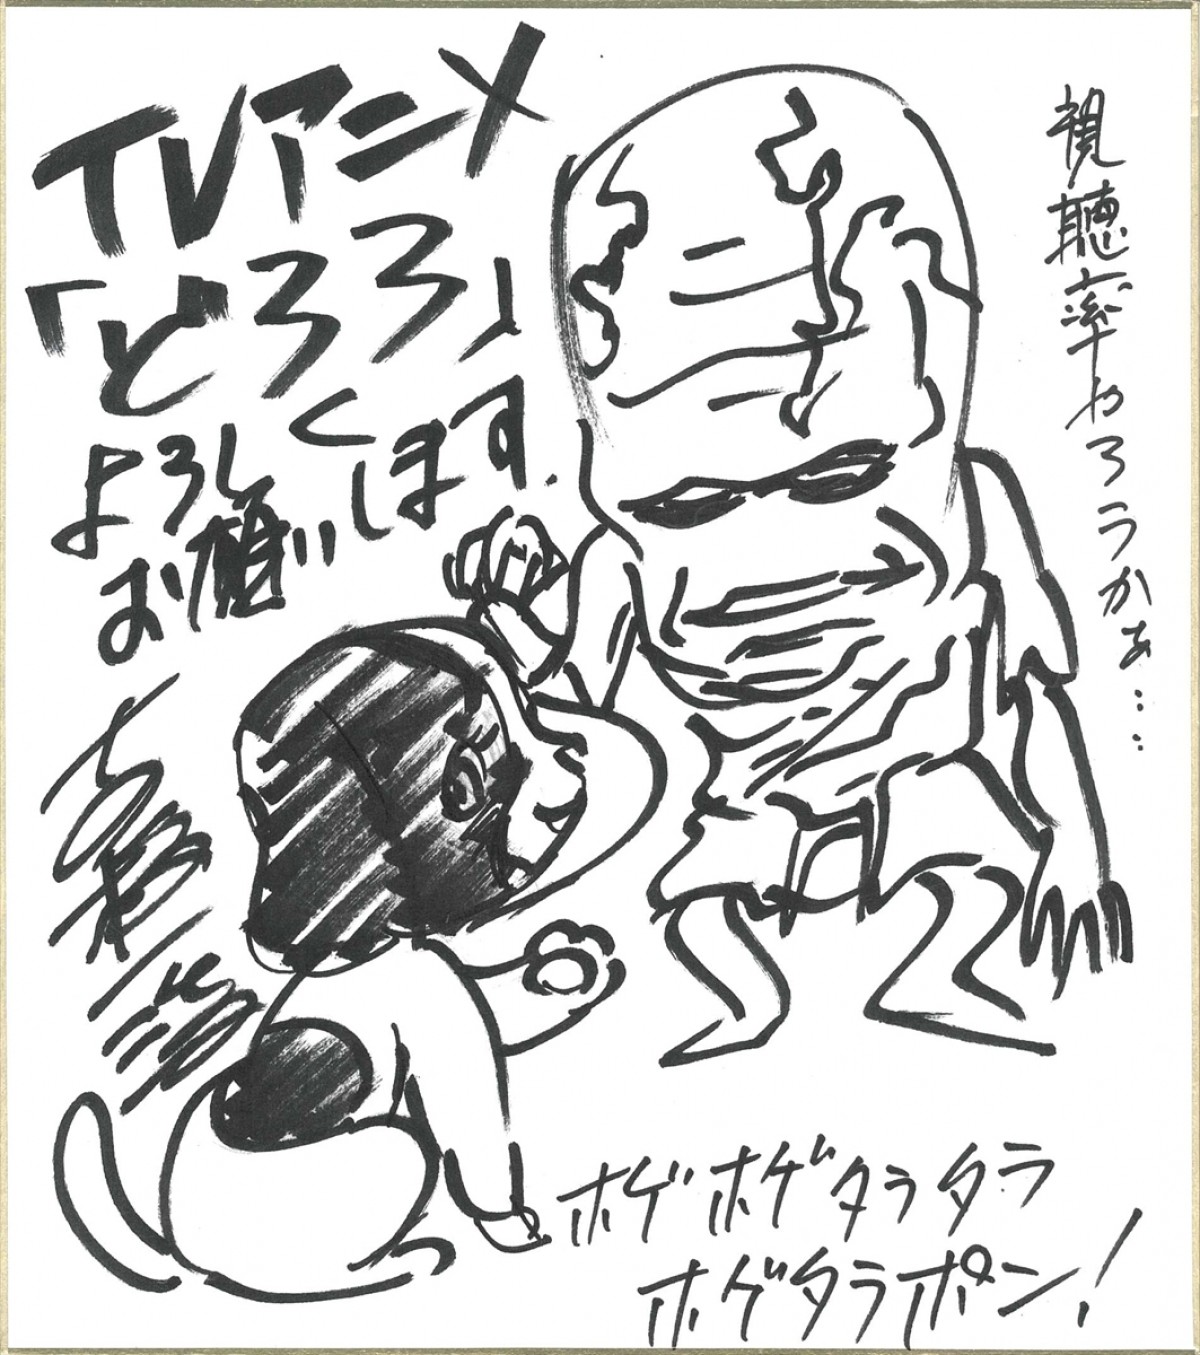 TVアニメ
「どろろ」
よろしく
お願いします.
視聴率やろうかぁ・・・・
ホゲホゲタラタラ
ホゲタラポン!